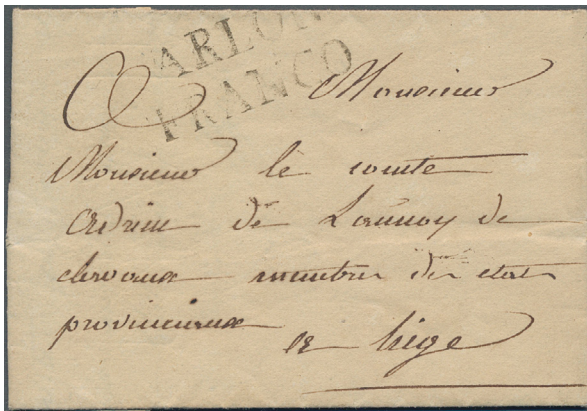 ARLON
FRANCO
A Monsieur
Monsieur le comte
Adrien de Lannoy de
clervaux membre des etats
provinciaux
a Liège